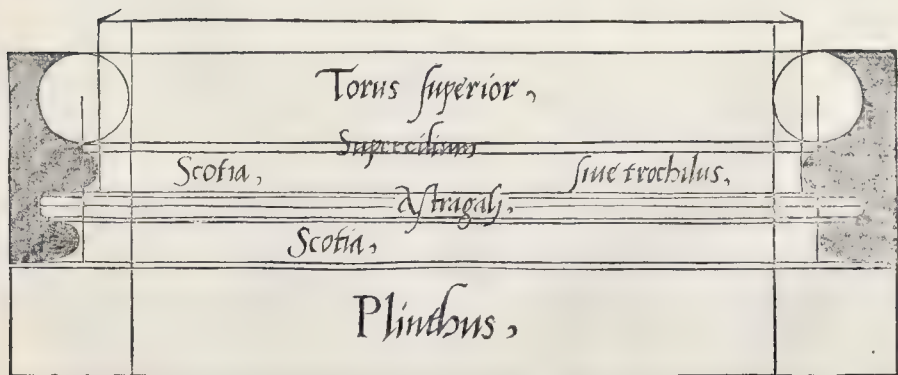 Torus ſuperior,
Supercilium
Scotia, ſiue trochilus,
Aſtragalj,
Scotia,
Plinthus,